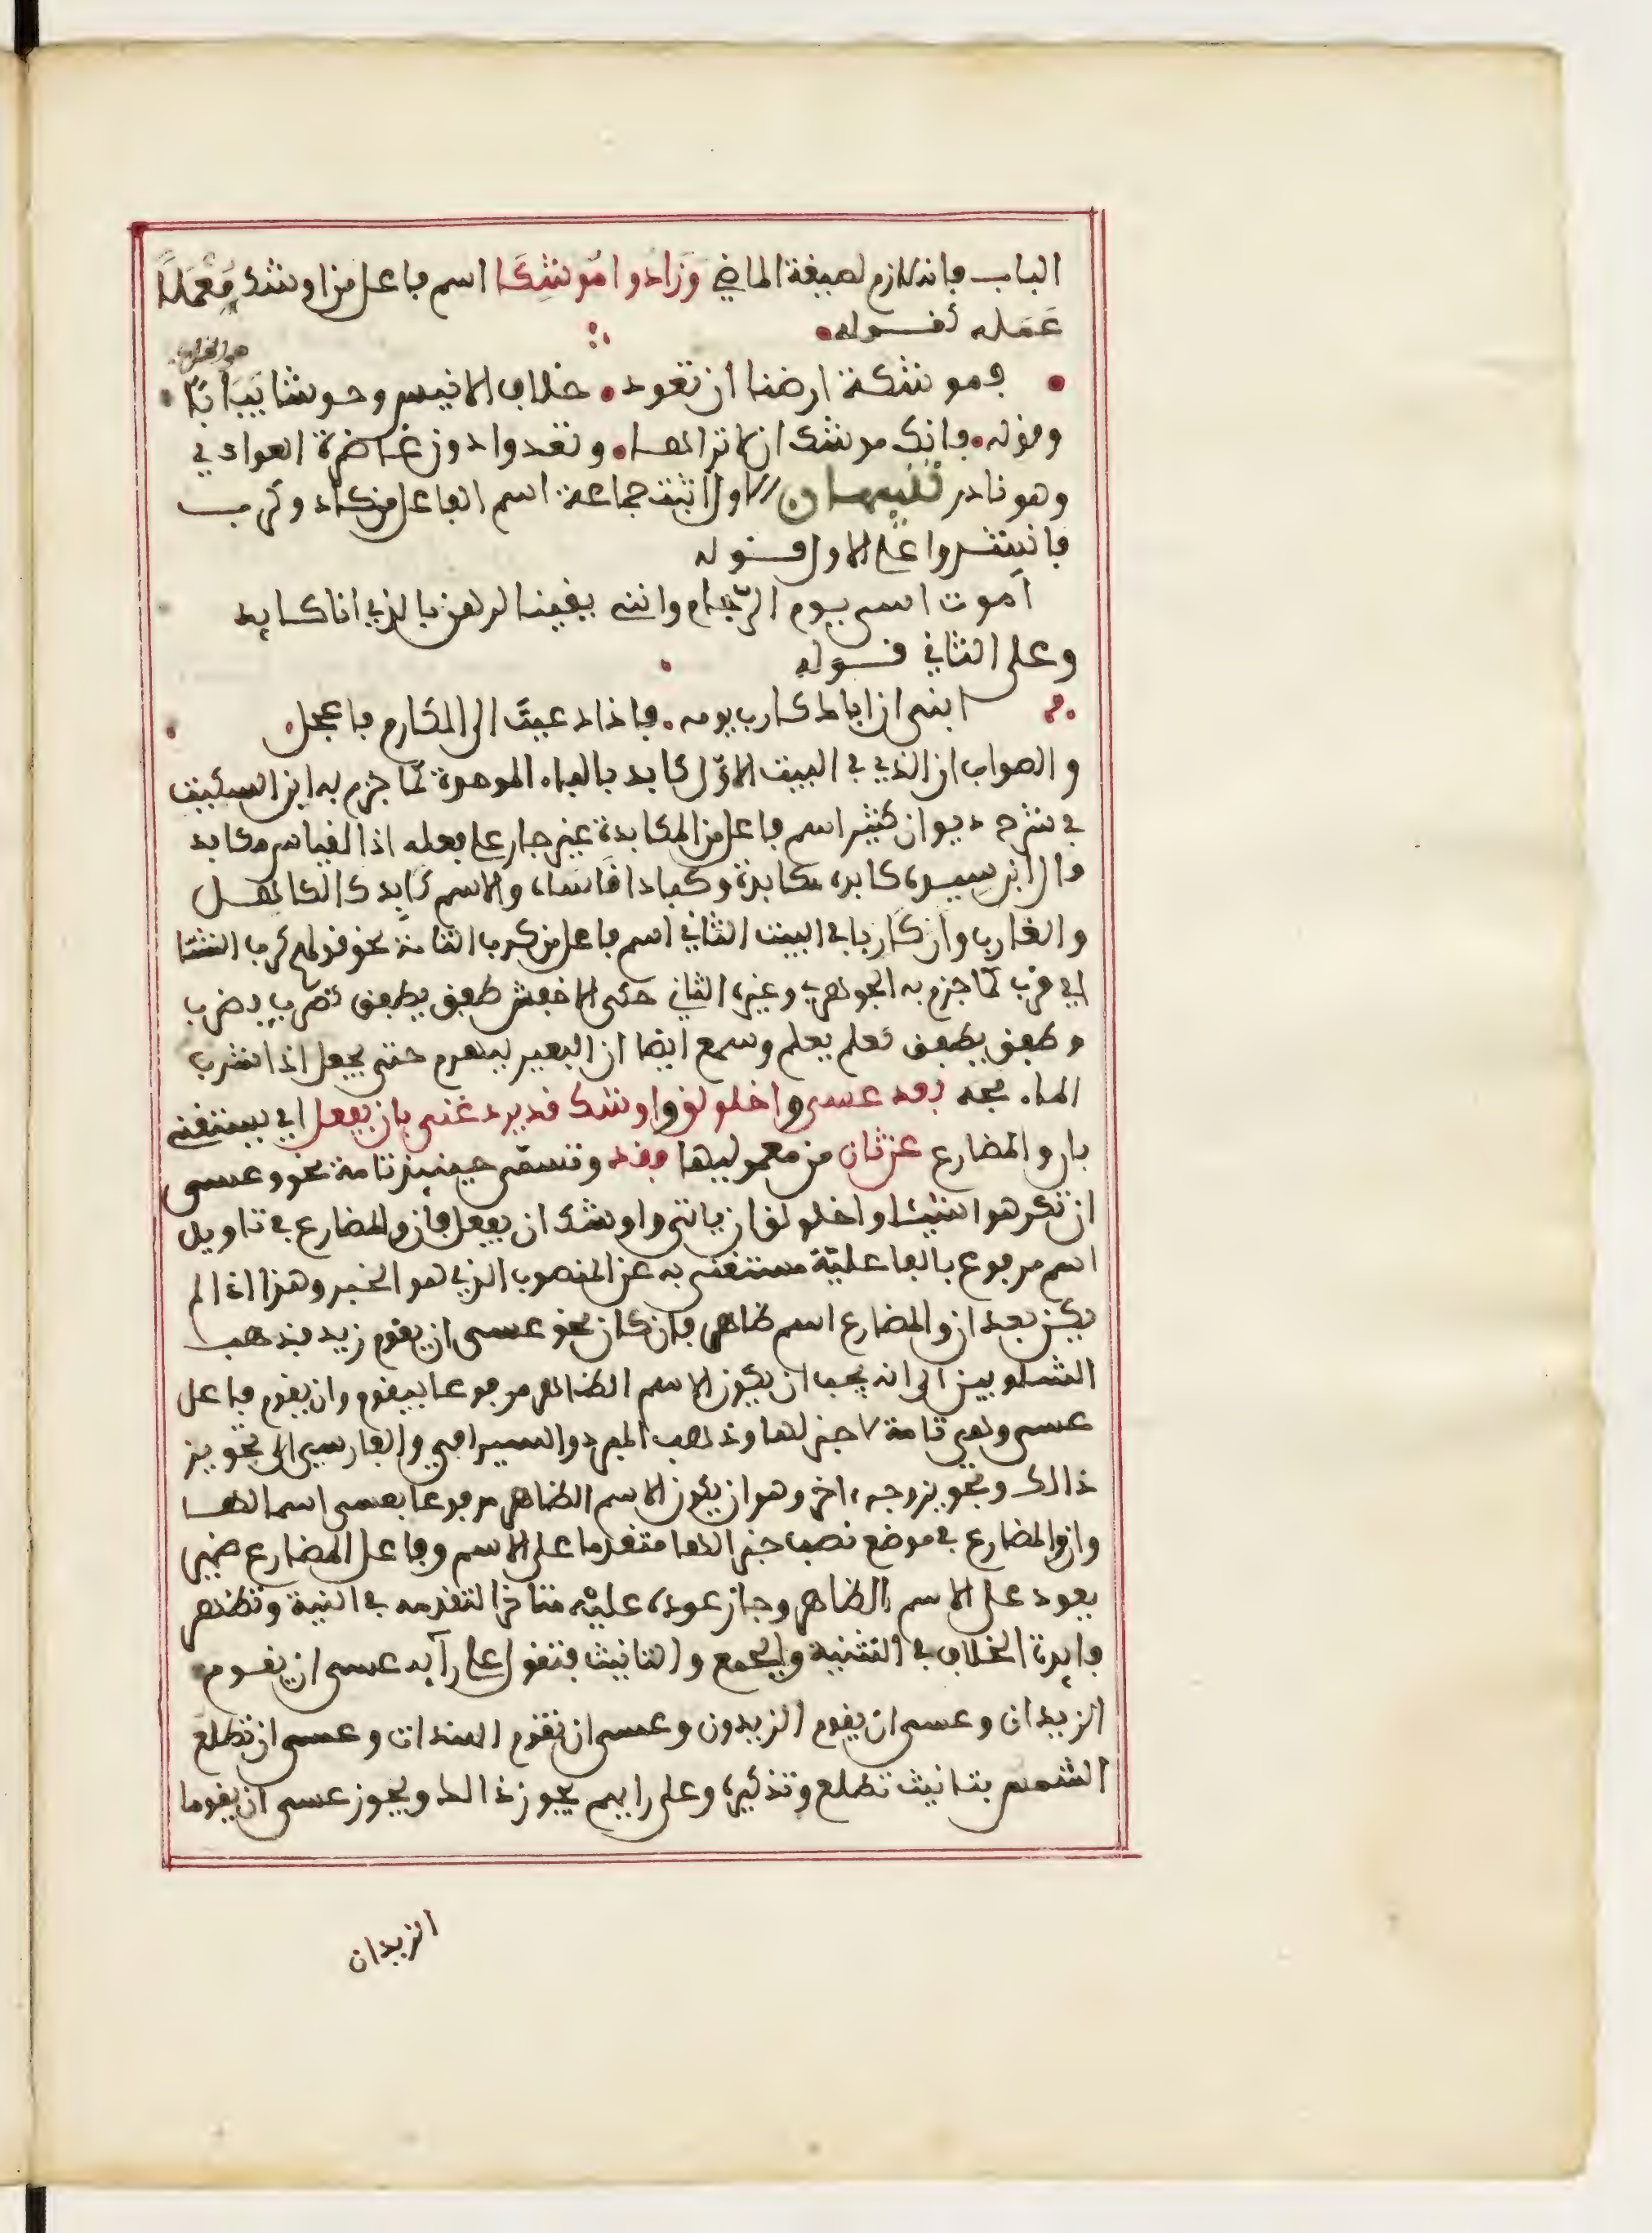 الباب فإنه لازم لصيغة الماضي وزادوا موشكا اسم فاعل من اوشك مُعْمَلًا
عَمَله كقوله
فموشكة ارضنا ان تعود خلاف الانيس وحوشا يَبَابًا
وقوله فانك موشك ان لا تراها وتعدوا دون غاضرة العوادي
وهو نادر تنبيهان الاول اثبت جماعة اسم الفاعل من كاد وكرب
فانشدوا على الاول قوله
اموت اسى يوم الرجام وانني يقينا لرهن بالذي انا كايد
وعلى الثاني قوله
ابني ان اباك كارب يومه فاذا دعيت الى المكارم فاعجل
والصواب ان الذي في البيت الاوّل كابد بالباء الموحدة كما جزم به ابن السكيت
في شرح ديوان كثير اسم فاعل من المكابدة غير جار على فعله اذ القياس مكابد
قال ابن سيده كابده مكابدة وكبادا قاساه والاسم كابد كالكاهل
والغارب وان كاربا في البيت الثاني اسم فاعل من كرب التامة نحو قولهم كرب الشتا
اي قرب كما جزم به الجوهري وغيره الثاني حكى الاخفش طفق يطفق كضرب يضرب
وطفق يطفق كعلم يعلم وسمع ايضا ان البعير ليهرم حتى يجعل اذا شرب
الماء مجه بعد عسى واخلولق واوشك قد يرد غنى بان يفعل اي يستغنى
بان والمضارع عن ثان من معموليها فقد وتسمى حينئذ تامة نحو وعسى
ان تكرهوا شيئا واخلولق ان ياتي واوشك ان يفعل فان والمضارع في تاويل
اسم مرفوع بالفاعلية مستغنى به عن المنصوب الذي هو الخبر وهذا اذا لم
يكن بعد ان والمضارع اسم ظاهر فان كان نحو عسى ان يقوم زيد فذهب
الشلوبين الى انه يجب ان يكون الاسم الظاهر مرفوعا بيقوم وان يقوم فاعل
عسى وهي تامة لا خبر لها وذهب المبرد والسيرافي والفارسي الى تجويز
ذالك وتجويز وجه ءاخر وهو ان يكون الاسم الظاهر مرفوعا بعسى اسما لها
وان والمضارع في موضع نصب خبرا لها متقدما على الاسم وفاعل المضارع ضمير
يعود على الاسم الظاهر وجاز عوده عليه متاخرا لتقدمه في النية وتظهر
فايدة الخلاف في التثنية والجمع والتانيث فتقول على رأيه عسى ان يقوم
الزيدان وعسى ان يقوم الزيدون وعسى ان تقوم الهندات وعسى ان تطلع
الشمس بتانيث تطلع وتذكيره وعلى رايهم يجوز ذالك ويجوز عسى ان يقوما
الزيدان